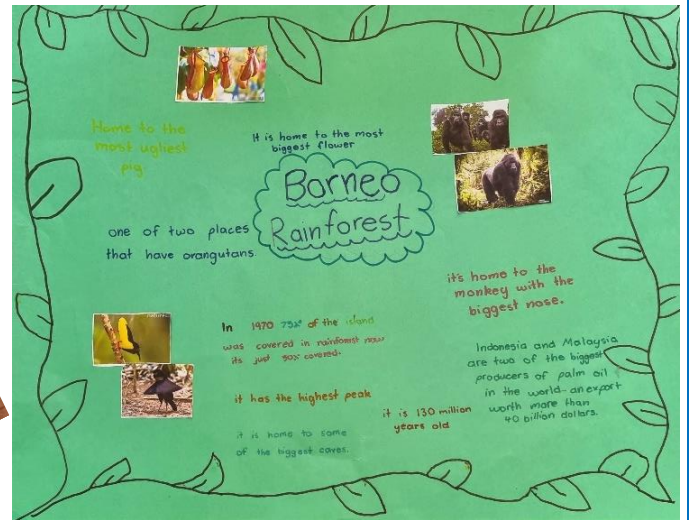 Home to the
most ugliest
pig.
It is home to the most
biggest flower
Borneo
Rainforest
one of two places
that have orangutans
it's home to the
monkey with the
biggest nose.
In 1970 75% of the island
was covered in rainforest now
its just 50% covered.
it has the highest peak
it is home to some
of the biggest caves.
it is 130 million
years old
Indonesia and Malaysia
are two of the biggest
producers of palm oil
in the world-an export
worth more than
40 billion dollars.